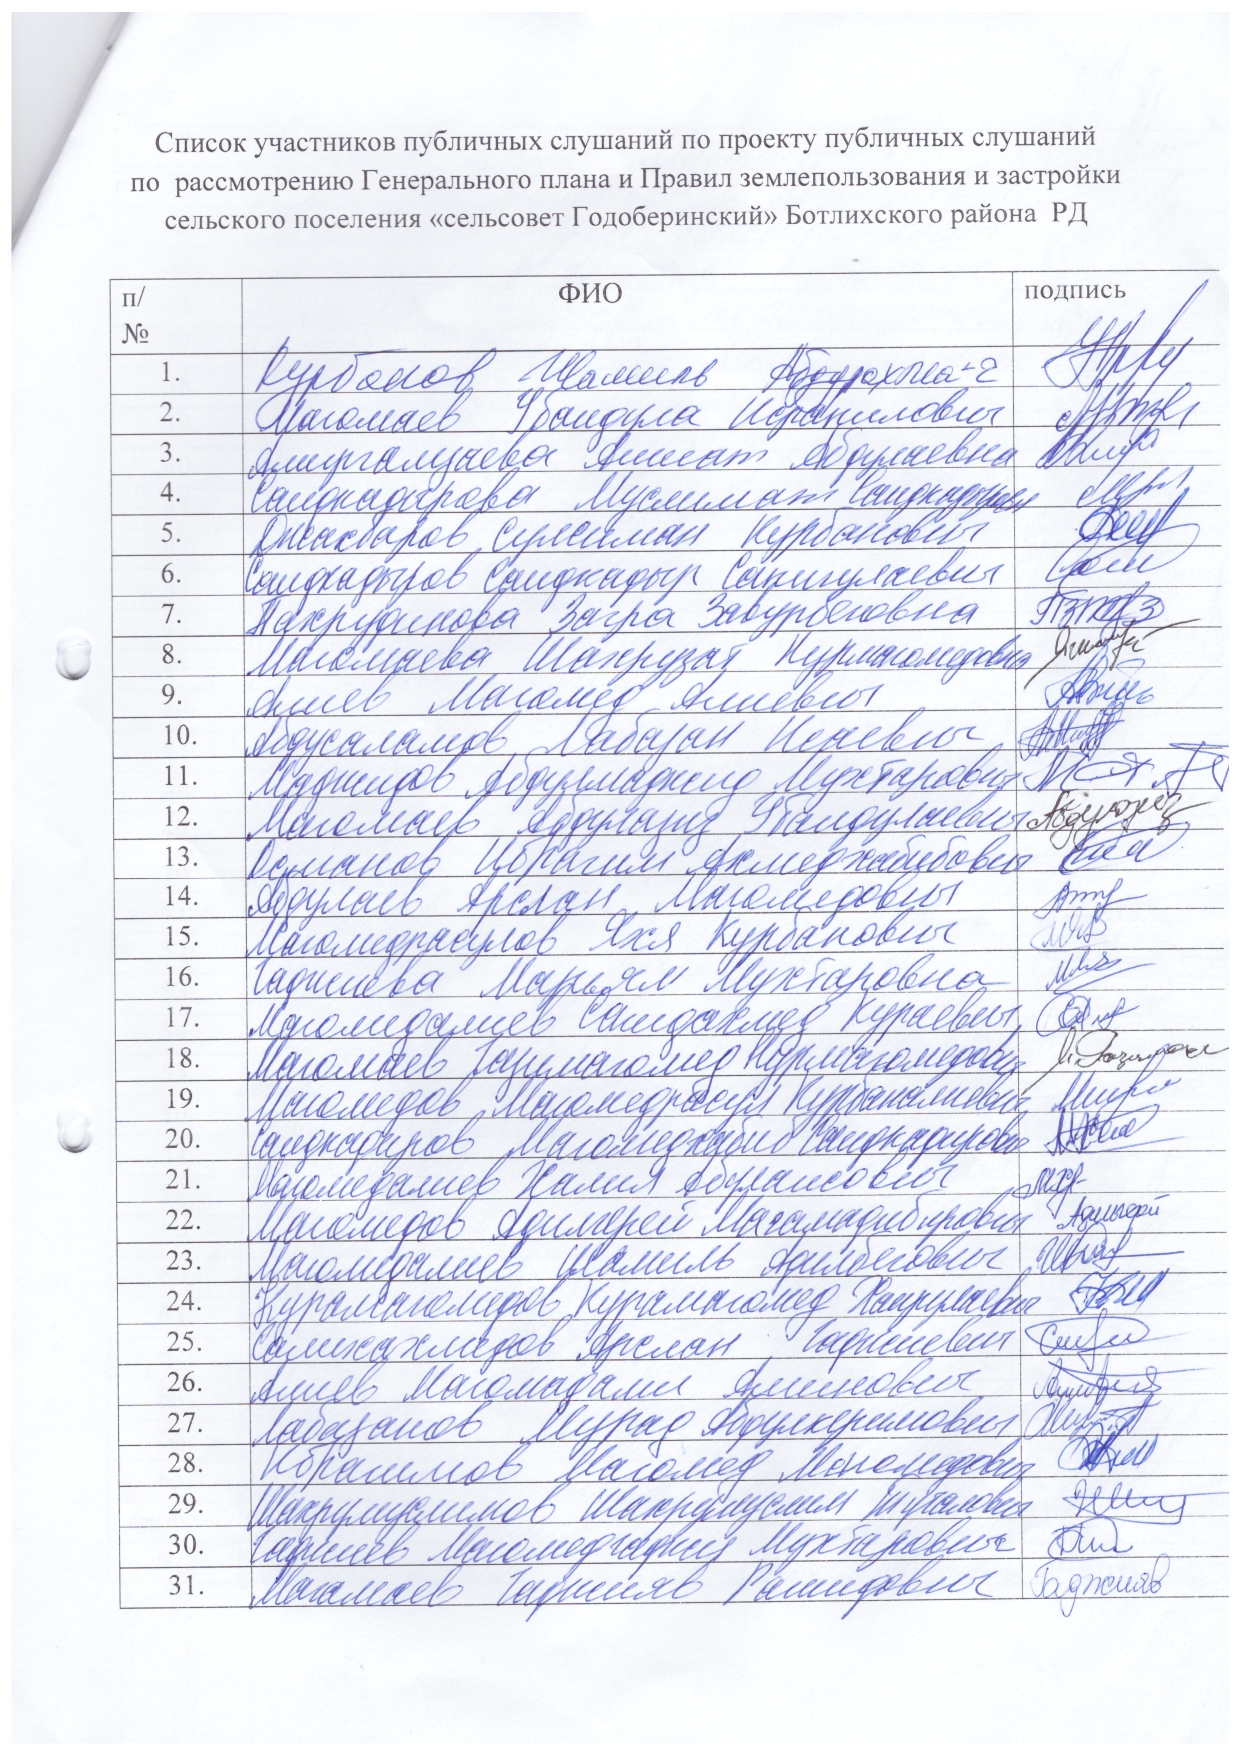 Список участников публичных слушаний по проекту публичных слушаний
по рассмотрению Генерального плана и Правил землепользования и застройки
сельского поселения «сельсовет Годоберинский» Ботлихского района РД
п/ ФИО подпись
№
1. Курбанов Шамиль
2. Магомаев Убайдула Исрапилович
3. Алиугалузаева Аминат Абдулаевна
4. Саидкадырова Муслимат
5. Джакбаров Сулейман Курбанович
6. Саидкадыров Саидкадыр Сапигулаевич
7. Пахрудинова Загра Завурбеговна
8. Магомаева Шахрузат Нурмагомедовна
9. Алиев Магомед Алиевич
10. Абдусаламов Лабазан Исаевич
11. Маджидов Абдулмаджид Мухтарович
12. Магомаев Абдулазиз Убайдулаевич
13. Османов Ибрагим Ахмедхабибович
14. Абдулаев Арслан Магомедович
15. Магомедрасулов Яхя Курбанович
16. Гаджиева Марьям Мухтаровна
17. Магомедалиев Саидахмед Кураевич
18. Магомаев Нурмагомедович
19. Магомедов Магомедрасул Курбаналиевич
20. Саидкадиров Магомедхабиб Саидкадирович
21. Магомедалиев Халил
22. Магомедов Адилгерей Магамадибирович Адилгерей
23. Магомедалиев Шамиль Адилбегович
24. Курамагомедов Курамагомед Хайрулаевич
25. Салихахмедов Арслан Гаджиевич
26. Алиев Магомадами Аминович
27. Лабазанов Мурад Абдулкеримович
28. Ибрагимов Магомед Магомедович
29. Шахрумуслимов Шахрумуслим
30. Гаджиев Магомедгаджи Мухтарович
31. Магамаев Гаджияв Рашидович Гаджияв